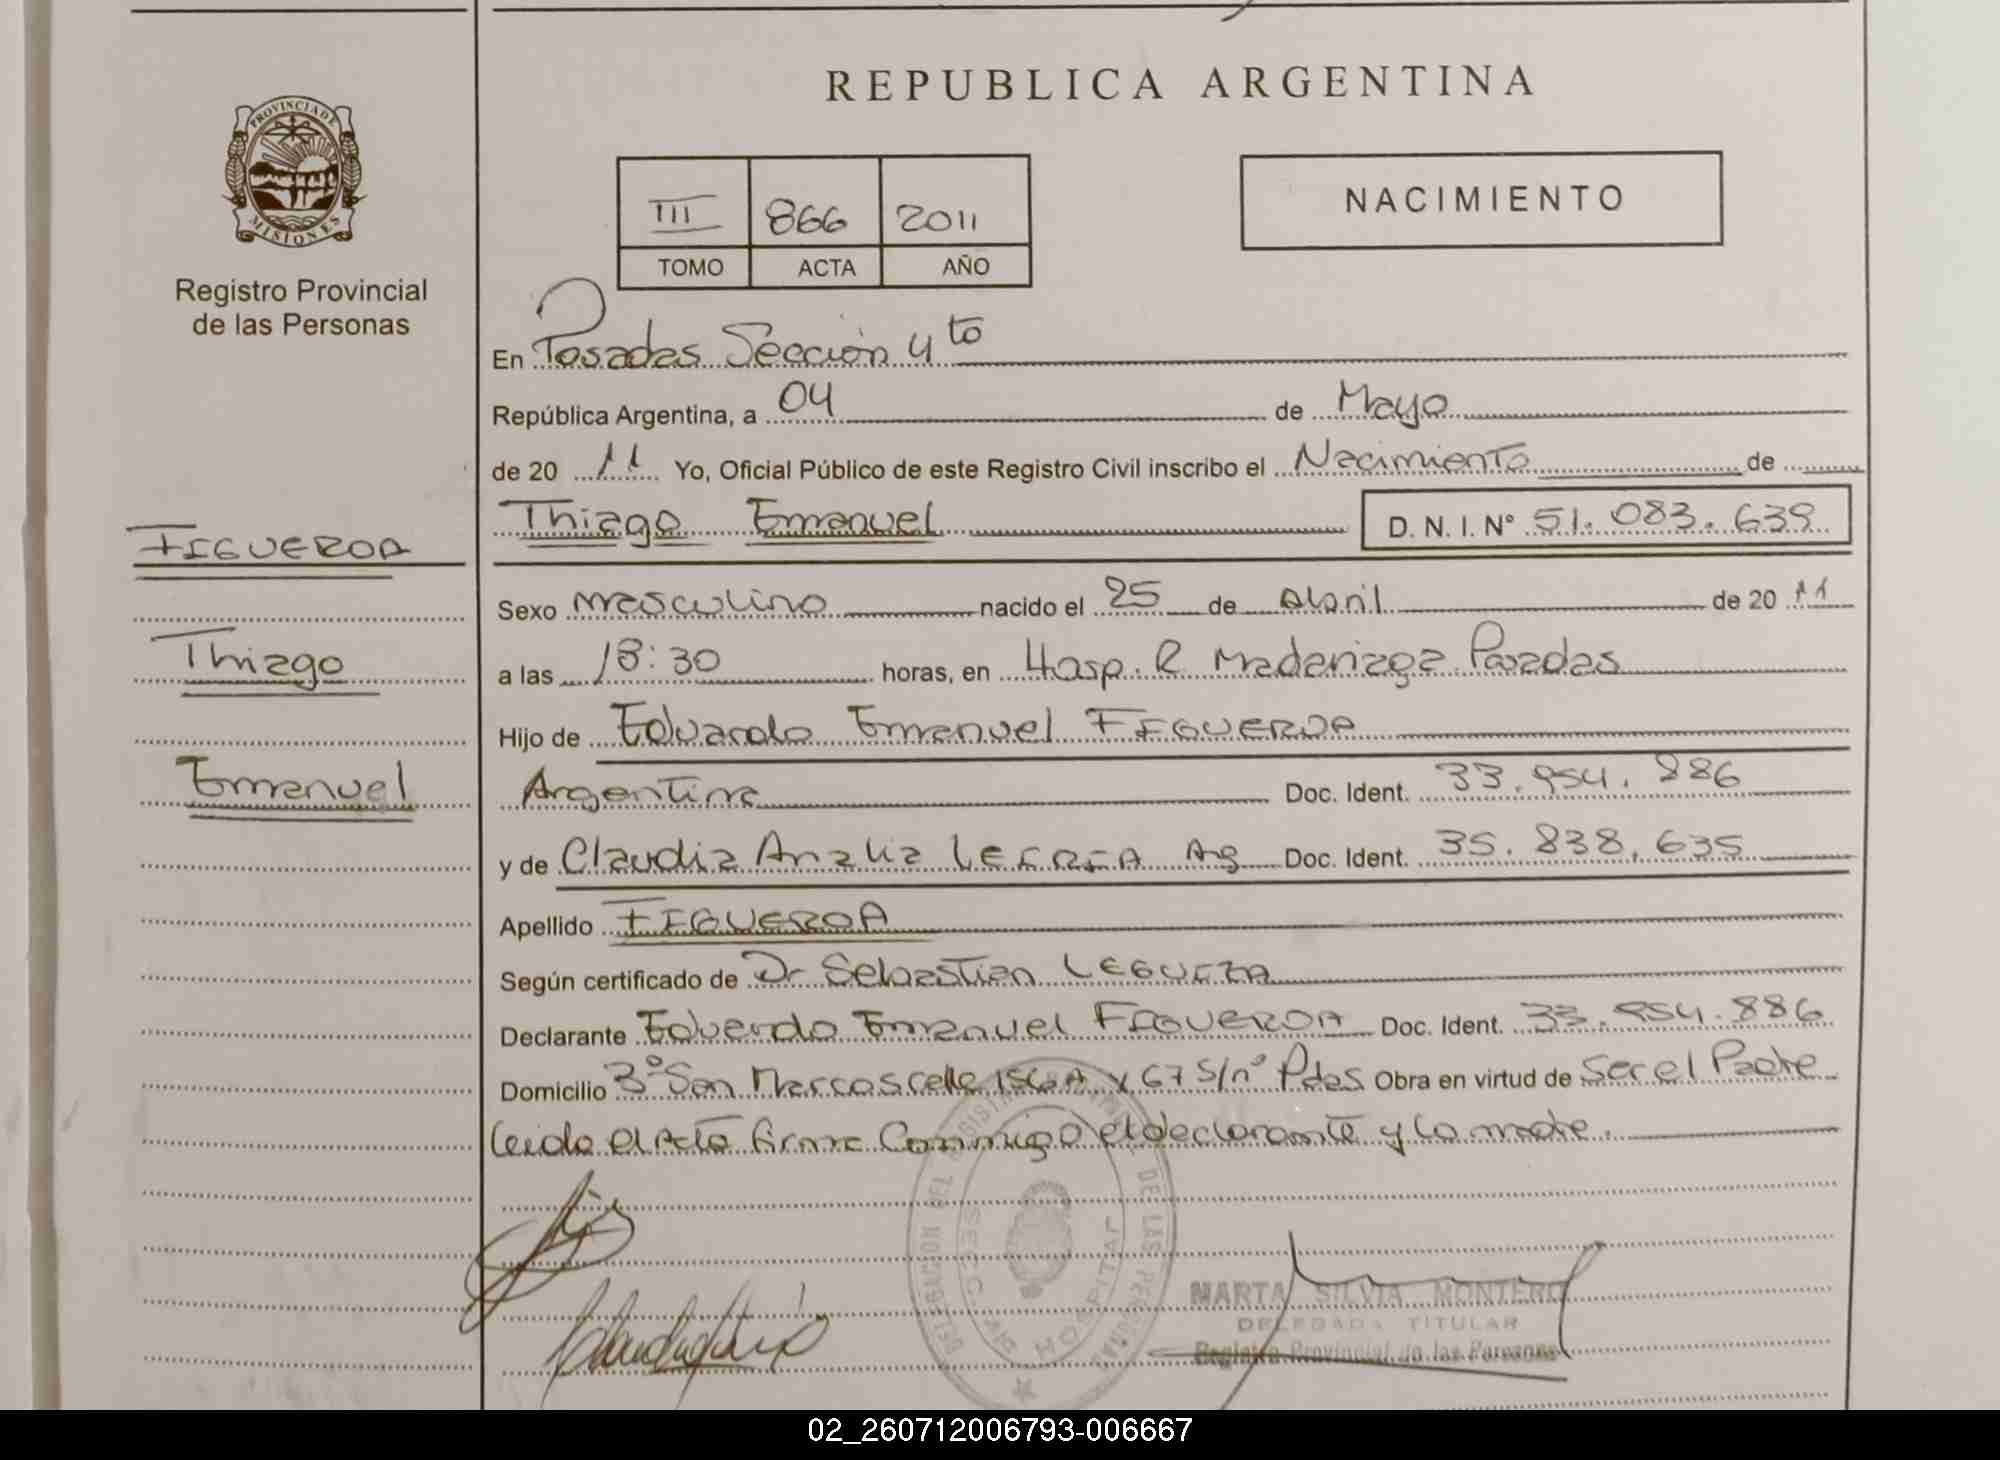 REPUBLICA ARGENTINA
PROVINCIA DE MISIONES
Registro Provincial
de las Personas
NACIMIENTO
III 866 2011
TOMO ACTA AÑO
En Posadas Sección 4to
República Argentina, a 04 de Mayo
de 20 11 Yo, Oficial Público de este Registro Civil inscribo el Nacimiento de
Thiago Emanuel D. N. I. N° 51.083.639
FIGUEROA
Thiago
Emanuel
Sexo masculino nacido el 25 de abril de 20 11
a las 18:30 horas, en Hosp. R Madariaga Posadas
Hijo de Eduardo Emanuel FIGUEROA
Argentina Doc. Ident. 33.954.886
y de Claudia Analia Arg Doc. Ident. 35.838.635
Apellido FIGUEROA
Según certificado de Dr Sebastian LEGUIZA
Declarante Eduardo Emanuel FIGUEROA Doc. Ident. 33.954.886
Domicilio 3° San Marcos calle 156A y 67 S/n° Pdas Obra en virtud de Ser el Padre
Leido el Acta firma Conmigo el declarante y la madre.
DELEGACION DEL REGISTRO PROVINCIAL DE LAS PERSONAS
SECC. 4ta HOSPITAL
MARTA SILVIA MONTERO
DELEGADA TITULAR
Registro Provincial de las Personas
02_260712006793-006667